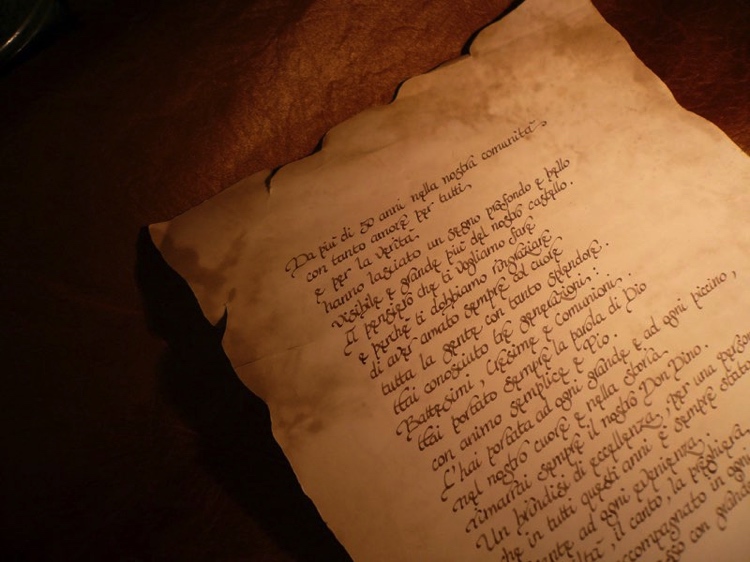 Da più di 50 anni nella nostra comunità
con tanto amore per tutti
e per la verità
hanno lasciato un segno profondo e bello
visibile e grande più del nostro castello.
Il pensiero che ti vogliamo fare
e perché ti dobbiamo ringraziare
di aver amato sempre col cuore
tutta la gente con tanto splendore.
Hai conosciuto tre generazioni:
Battesimi, Cresime e comunioni.
Hai portato sempre la parola di Dio
con animo semplice e Pio.
L'hai portata ad ogni grande e ad ogni piccino,
nel nostro cuore e nella storia
rimarrai sempre il nostro Don Dino.
Un brindisi di eccellenza, per una
che in tutti questi anni è sempre stato
ad ogni evenienza.
il canto, la preghiera
accompagnato in ogni
con